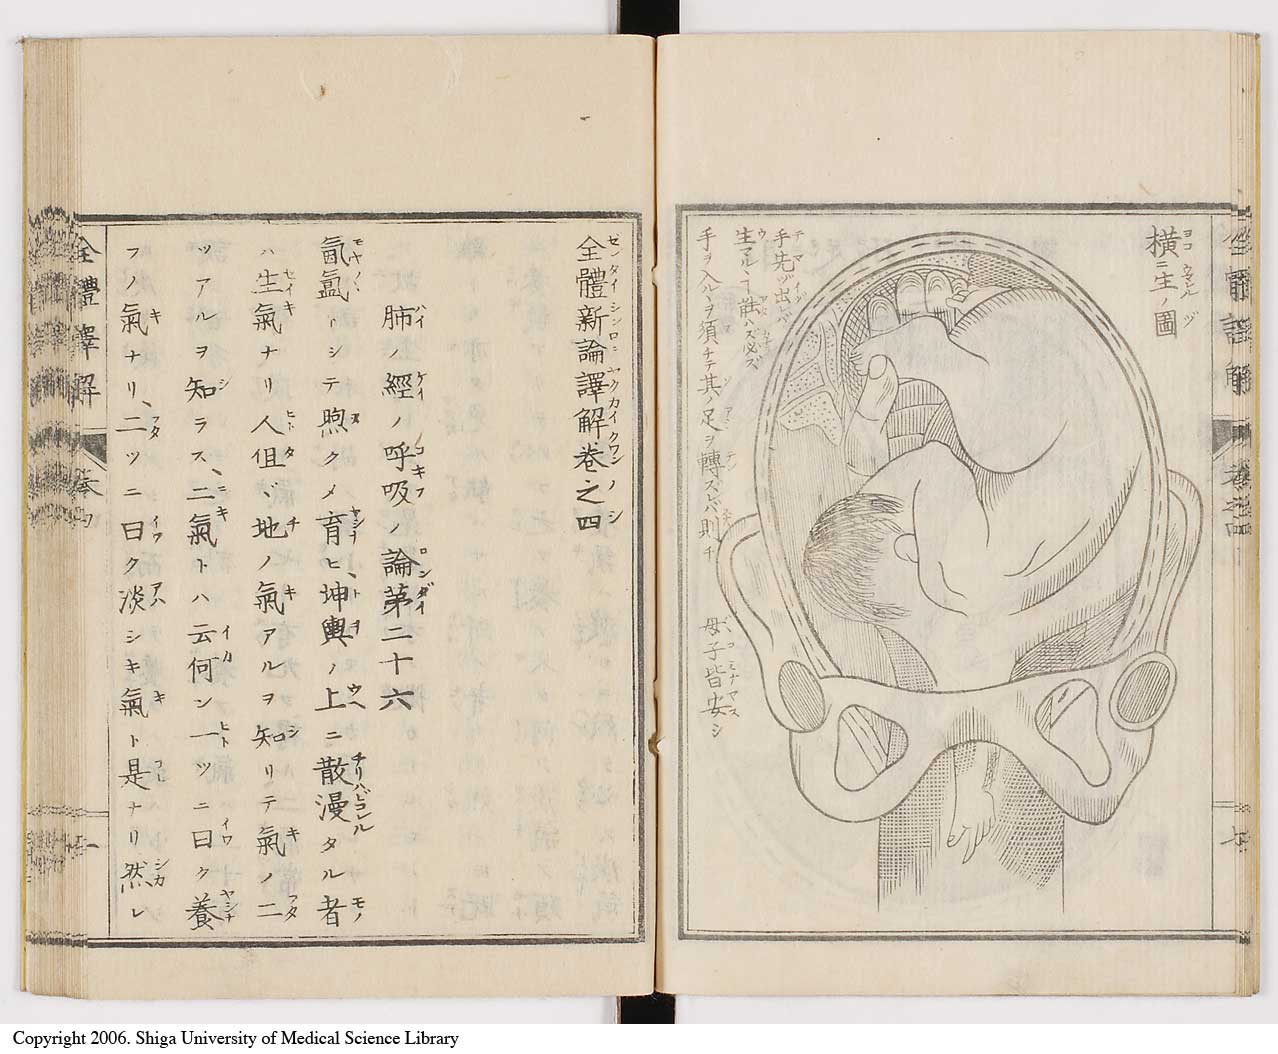 横ニ生ノ圖
手先ヅ出レバ
生マルヿ能ハズ必ズ
手ヲ入ルヽヲ須チテ其ノ足ヲ轉ズレバ則チ
母子皆安シ
全體新論譯解巻之四
肺ノ經ノ呼吸ノ論第二十六
氤氳トシテ煦クメ育ヒ、坤輿ノ上ニ散漫タル者
ハ生氣ナリ人但ヾ地ノ氣アルヲ知リテ氣ノ二
ツアルヲ知ラス、二氣トハ云何ン一ツニ曰ク養
フノ氣ナリ、二ツニ曰ク淡シキ氣ト是ナリ然レ
全體譯解
巻四
Copyright 2006. Shiga University of Medical Science Library